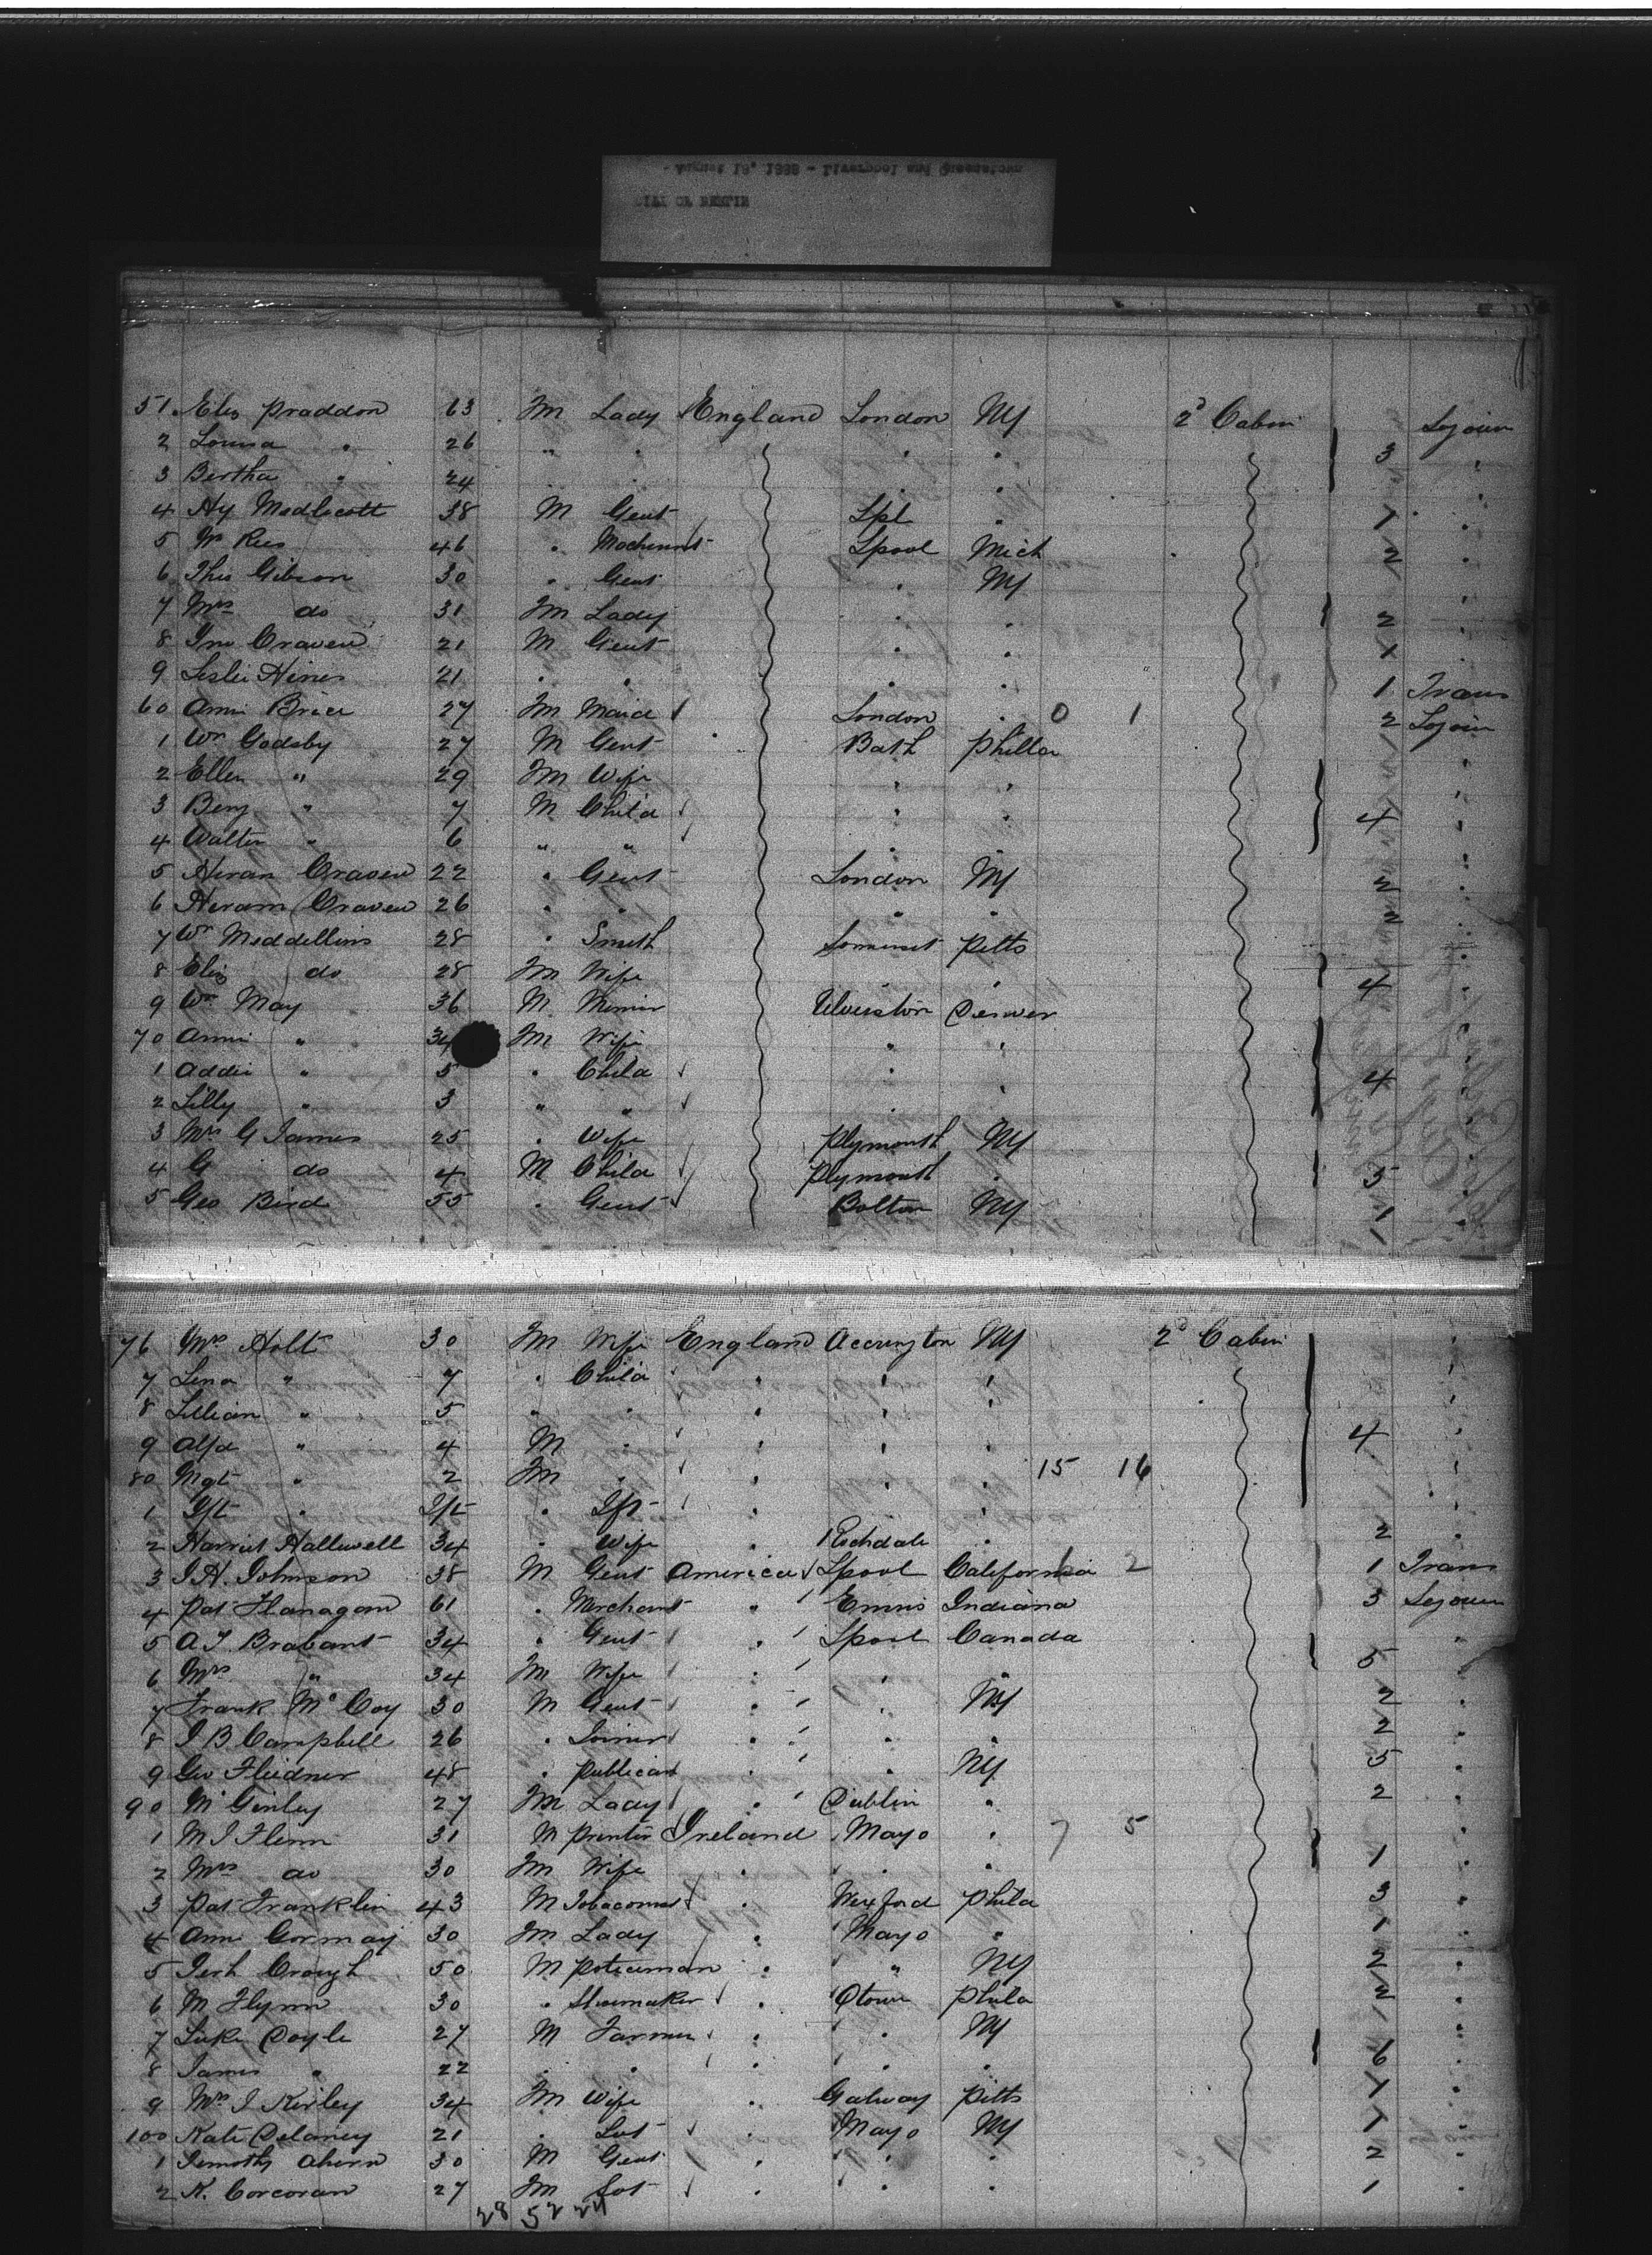 August 19, 1888 - Liverpool and Queenstown
CITY OF BERLIN
51 Eliz Praddon 63 Fm Lady England London NY 2d Cabin Sojourn
2 Louisa " 26 " " " " 3 "
3 Bertha " 24 " " " " "
4 Hy Medlicott 38 M Gent Lpl " 1 "
5 Wm Rees 46 " Machinist Lpool Mich 2 "
6 Thos Gibson 30 " Gent " NY "
7 Mrs do 31 Fm Lady " " 2 "
8 Jno Craven 21 M Gent " " 1 "
9 Leslie Hines 21 " " " " 1 Trans
60 Annie Brice 27 Fm Maid London " 0 1 2 Sojourn
1 Wm Godsby 27 M Gent Bath Philla "
2 Ellen " 29 Fm Wife " " "
3 Benj " 7 M Child " " 4 "
4 Walter " 6 " " " " "
5 Hiran Craven 22 " Gent London NY 2 "
6 Hiram Craven 26 " " " " 2 "
7 Wm Meddellins 28 " Smith Somerset Pitts "
8 Eliz do 28 Fm Wife " " 4 "
9 Wm May 36 M Miner Ulverston Denver
70 Annie " 34 Fm Wife " " "
1 Addie " 5 " Child " " 4 "
2 Lilly " 3 " " " " "
3 Mrs G James 25 " Wife Plymouth NY "
4 G do 4 M Child Plymouth " 3 "
5 Geo Bird 55 " Gent Bolton NY 1 "
76 Mrs Holt 30 Fm Wife England Accrington NY 2d Cabin "
7 Lena " 7 " Child " " " "
8 Lillian " 5 " " " " " "
9 Alfd " 4 M " " " " 4 "
80 Mgt " 2 Fm " " " " 15 16 "
1 Ift " Ift " Ift " " "
2 Harriet Halliwell 34 " Wife " Rochdale " 2 "
3 J H. Johnson 38 M Gent America Lpool California 2 1 Trans
4 Pat Flanagan 61 " Merchant " Ennis Indiana 3 Sojourn
5 A J. Brabant 34 " Gent " Lpool Canada "
6 Mrs " 34 Fm Wife " " " 5 "
7 Frank McCoy 30 M Gent " " NY 2 "
8 J B Campbell 26 " Joiner " " " 2 "
9 Geo Fliedner 48 " Publican " " NY 5 "
90 M Ginley 27 Fm Lady " Dublin " 2 "
1 M J Flinn 31 M Printer Ireland Mayo " 7 5 "
2 Mrs do 30 Fm Wife " " " 1 "
3 Pat Franklin 43 M Tobaconist " Wexford Phila 3 "
4 Ann Gormay 30 Fm Lady " Mayo " 1 "
5 Jerh Crough 50 M Policeman " " NY 2 "
6 M Flynn 30 " Shoemaker " Qtown Phila 2 "
7 Luke Doyle 27 M Farmer " " NY "
8 James " 22 " " " " " 6 "
9 Mrs J Kirley 34 Fm Wife " Galway Pitts 1 "
100 Kate Delaney 21 " Svt " Mayo NY 1 "
1 Timothy Ahern 30 M Gent " " " 2 "
2 K. Corcoran 27 Fm Svt " " " 1 "
28 52 24